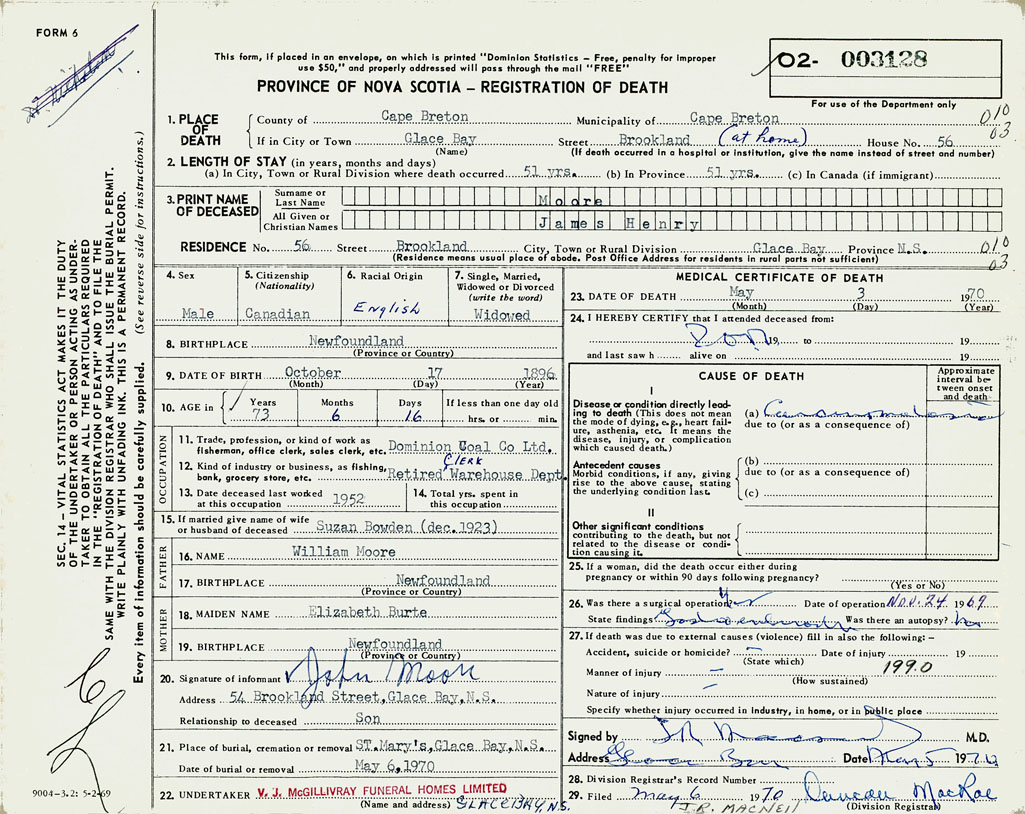 FORM 6
This form, if placed in an envelope, on which is printed "Dominion Statistics – Free, penalty for improper
use $50," and properly addressed will pass through the mail "FREE"
02- 003128
For use of the Department only
PROVINCE OF NOVA SCOTIA – REGISTRATION OF DEATH
SEC. 14 – VITAL STATISTICS ACT MAKES IT THE DUTY
OF THE UNDERTAKER OR PERSON ACTING AS UNDER-
TAKER TO OBTAIN ALL THE PARTICULARS REQUIRED
IN THE "REGISTRATION OF DEATH" AND TO FILE THE
SAME WITH THE DIVISION REGISTRAR WHO SHALL ISSUE THE BURIAL PERMIT.
WRITE PLAINLY WITH UNFADING INK. THIS IS A PERMANENT RECORD.
Every item of information should be carefully supplied. (See reverse side for instructions.)
1. PLACE OF DEATH
County of Cape Breton Municipality of Cape Breton 010
If in City or Town Glace Bay Street Brookland (at home) House No. 56 03
(Name) (If death occurred in a hospital or institution, give the name instead of street and number)
2. LENGTH OF STAY (in years, months and days)
(a) In City, Town or Rural Division where death occurred 51 yrs. (b) In Province 51 yrs. (c) In Canada (if immigrant)
3. PRINT NAME OF DECEASED
Surname or Last Name Moore
All Given or Christian Names James Henry
RESIDENCE No. 56 Street Brookland City, Town or Rural Division Glace Bay Province N.S. 010
(Residence means usual place of abode. Post Office Address for residents in rural parts not sufficient) 03
4. Sex Male
5. Citizenship (Nationality) Canadian
6. Racial Origin English
7. Single, Married, Widowed or Divorced (write the word) Widowed
8. BIRTHPLACE Newfoundland
(Province or Country)
9. DATE OF BIRTH October 17 1896
(Month) (Day) (Year)
10. AGE in Years 73 Months 6 Days 16 If less than one day old hrs. or min.
OCCUPATION
11. Trade, profession, or kind of work as
fisherman, office clerk, sales clerk, etc. Dominion Coal Co Ltd.
CLERK
12. Kind of industry or business, as fishing,
bank, grocery store, etc. Retired Warehouse Dept.
13. Date deceased last worked at this occupation 1952
14. Total yrs. spent in this occupation
15. If married give name of wife
or husband of deceased Suzan Bowden (dec.1923)
FATHER
16. NAME William Moore
17. BIRTHPLACE Newfoundland
(Province or Country)
MOTHER
18. MAIDEN NAME Elizabeth Burte
19. BIRTHPLACE Newfoundland
(Province or Country)
20. Signature of informant John Moore
Address 54 Brookland Street, Glace Bay, N.S.
Relationship to deceased Son
21. Place of burial, cremation or removal ST.Mary's, Glace Bay, N.S.
Date of burial or removal May 6, 1970
22. UNDERTAKER V. J. McGILLIVRAY FUNERAL HOMES LIMITED
(Name and address) GLACE BAY, N.S.
9004-3.2: 5-2-69
MEDICAL CERTIFICATE OF DEATH
23. DATE OF DEATH May 3 1970
(Month) (Day) (Year)
24. I HEREBY CERTIFY that I attended deceased from:
19 to 19
and last saw h alive on 19
CAUSE OF DEATH
Approximate interval between onset and death
I
Disease or condition directly lead-
ing to death (This does not mean
the mode of dying, e.g., heart fail-
ure, asthenia, etc. It means the
disease, injury, or complication
which caused death.)
(a)
due to (or as a consequence of)
Antecedent causes
Morbid conditions, if any, giving
rise to the above cause, stating
the underlying condition last.
(b)
due to (or as a consequence of)
(c)
II
Other significant conditions
contributing to the death, but not
related to the disease or condi-
tion causing it.
25. If a woman, did the death occur either during
pregnancy or within 90 days following pregnancy?
(Yes or No)
26. Was there a surgical operation? Yes Date of operation Nov. 24 1969
State findings Was there an autopsy? No
27. If death was due to external causes (violence) fill in also the following: –
Accident, suicide or homicide? – Date of injury 19
(State which)
Manner of injury – 199.0
(How sustained)
Nature of injury –
Specify whether injury occurred in industry, in home, or in public place
Signed by M.D.
Address Date May 5 1970
28. Division Registrar's Record Number
29. Filed May 6 1970 Duncan MacRae
J.R. MACNEIL (Division Registrar)